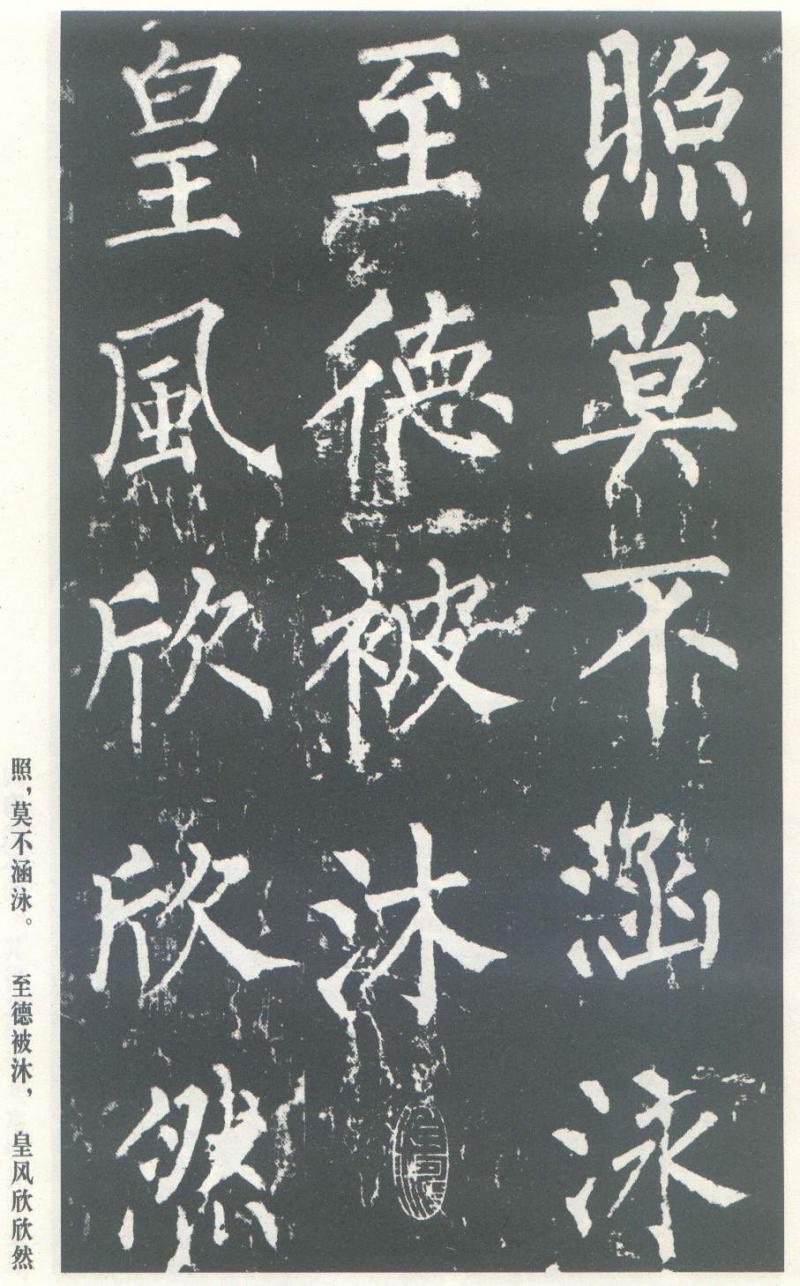 照莫不涵泳
至德被沐
皇風欣欣然
照，莫不涵泳。至德被沐，皇风欣欣然